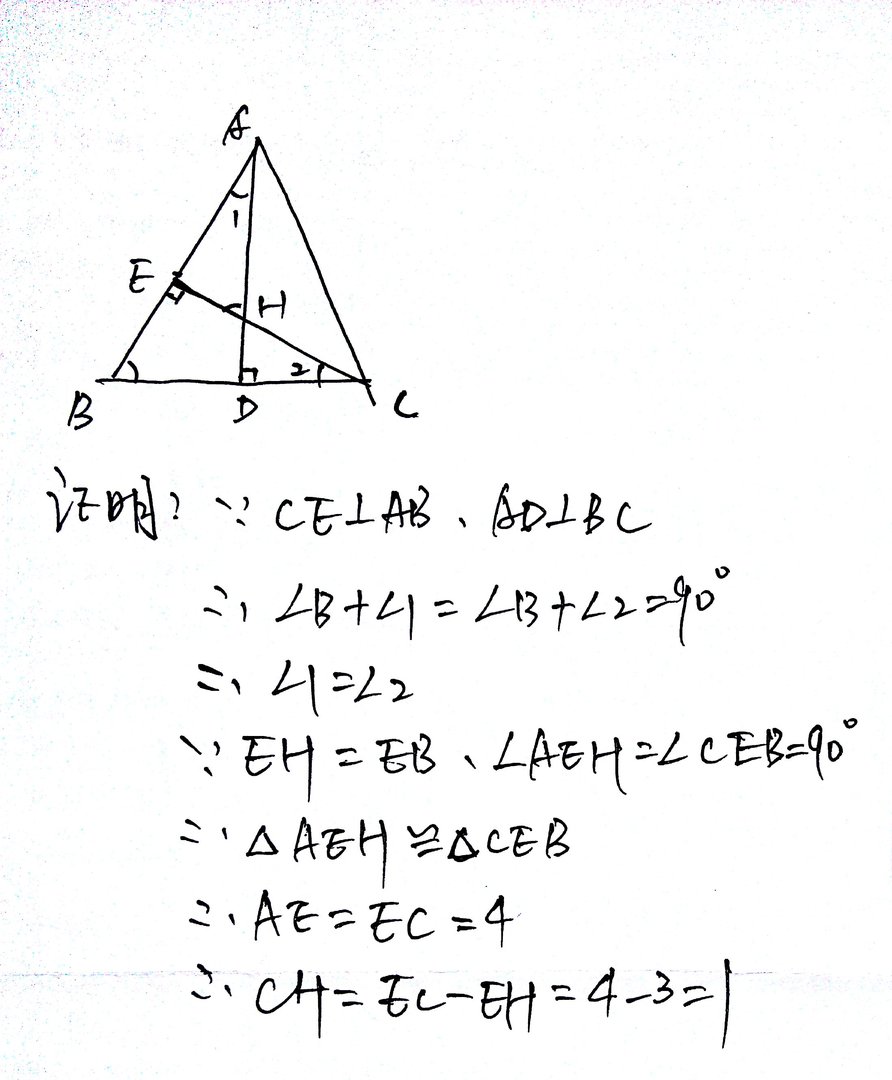 A
1
E
H
2
B
D
C
证明: ∵ CE⊥AB、AD⊥BC
∴ ∠B+∠1=∠B+∠2=90°
∴ ∠1=∠2
∵ EH=EB、∠AEH=∠CEB=90°
∴ △AEH≌△CEB
∴ AE=EC=4
∴ CH=EC-EH=4-3=1